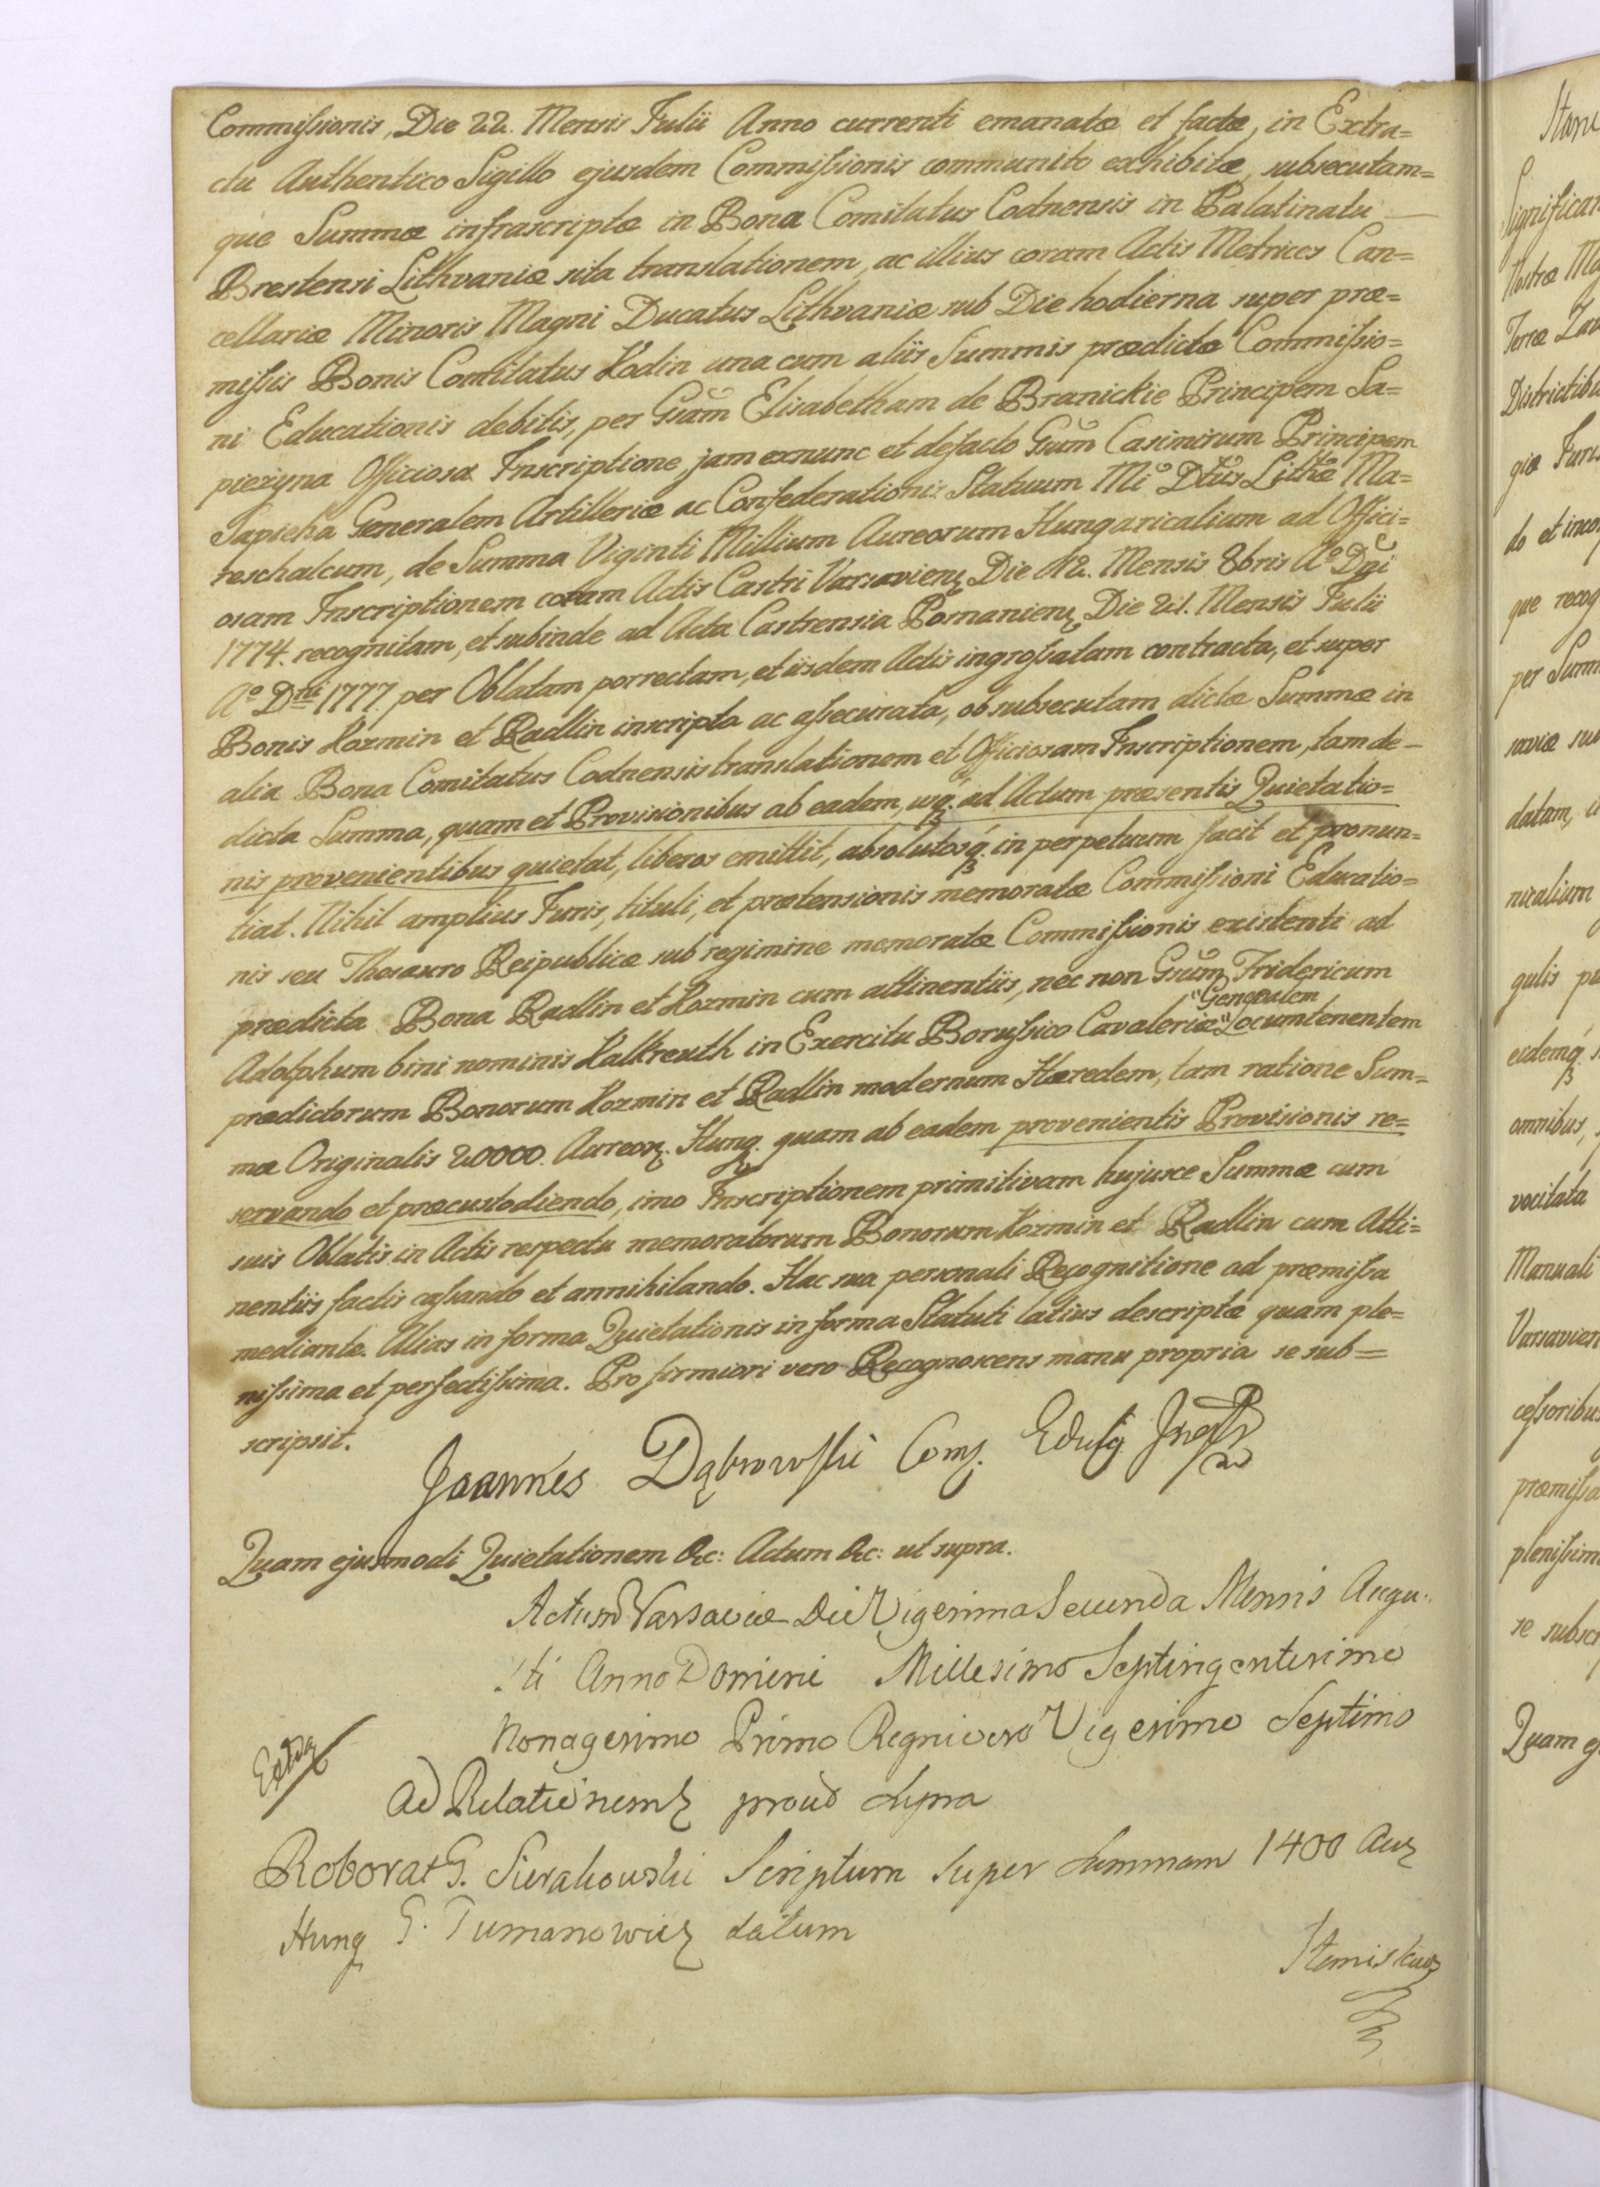 Commissionis, Die 22. Mensis Julii Anno currenti emanatæ et factæ, in Extra=
ctu Authentico Sigillo ejusdem Commissionis communito exhibitæ, subsecutam=
que Summæ infrascriptæ in Bona Comitatus Codnensis in Palatinatu
Brestensi Lithvaniæ sita translationem, ac illius coram Actis Metrices Can=
cellariæ Minoris Magni Ducatus Lithvaniæ sub Die hodierna super præ=
missis Bonis Comitatus Kodin una cum aliis Summis prædictæ Commissio=
ni Educationis debitis, per Gsam Elisabetham de Branickie Principem Sa=
piezyna Officiosa Inscriptione jam exnunc et defacto Gsum Casimirum Principem
Sapieha Generalem Artilleriæ ac Confederationis Statuum Mi Dtus Lithæ Ma=
reschalcum, de Summa Viginti Millium Aureorum Hungaricalium ad Offici=
osam Inscriptionem coram Actis Castri Varsavienz Die 12. Mensis 8bris Aº Dni
1774. recognitam, et subinde ad Acta Castrensia Posnanienz Die 21. Mensis Julii
Aº Dni 1777 per Oblatam porrectam, et iisdem Actis ingrossatam contracta, et super
Bonis Kozmin et Radlin inscripta ac assecurata, ob subsecutam dictæ Summæ in
alia Bona Comitatus Codnensis translationem et Officiosam Inscriptionem, tam de
dicta Summa, quam et Provisionibus ab eadem, usq. ad Actum præsentis Quietatio=
nis provenientibus quietat, liberos emittit, absolutosq. in perpetuum facit et pronun=
tiat. Nihil amplius Juris, tituli, et prætensionis memoratæ Commissioni Educatio=
nis seu Thesauro Reipublicæ sub regimine memoratæ Commissionis existenti ad
prædicta Bona Radlin et Kozmin cum attinentiis, nec non Gsum Fridericum
Adolphum bini nominis Kalkreuth in Exercitu Borussico Cavaleriæ "Generalem" Locumtenentem
prædictorum Bonorum Kozmin et Radlin modernum Hæredem, tam ratione Sum=
mæ Originalis 20000. Aureorz. Hung. quam ab eadem provenientis Provisionis re=
servando et præcustodiendo, imo Inscriptionem primitivam hujusce Summæ cum
suis Oblatis in Actis respectu memoratorum Bonorum Kozmin et Radlin cum Atti=
nentiis factis cassando et annihilando. Hac sua personali Recognitione ad præmissa
mediante. Alias in forma Quietationis in forma Statuti latius descriptæ quam ple=
nissima et perfectissima. Pro firmiori vero Recognoscens manu propria se sub=
scripsit.
Joannes Dąbrowski Com.
Quam ejusmodi Quietationem &c: Actum &c: ut supra.
Actum Varsaviæ Die Vigesima Secunda Mensis Augu=
sti Anno Domini Millesimo Septingentesimo
Nonagesimo Primo Regni vero Vigesimo Septimo
Ad Relationem prout supra
Roborat G. Sierakowski Scriptum super summam 1400 Aur
Hung G. Tumanowicz datum